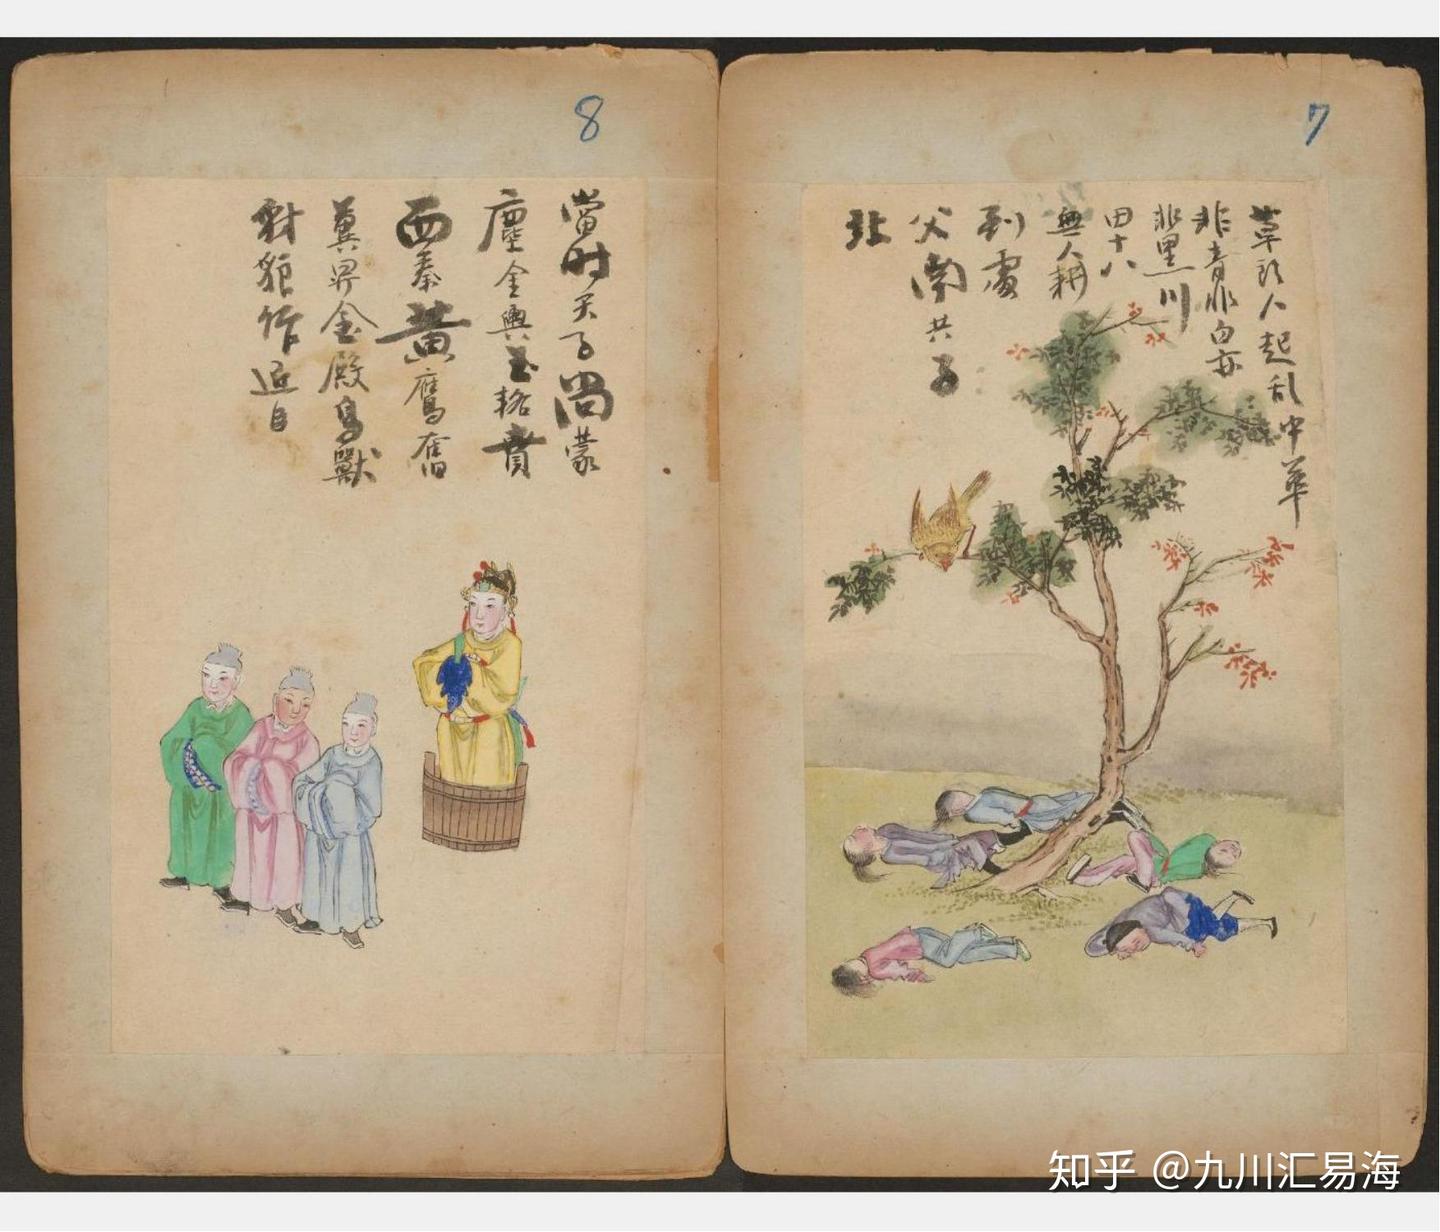 7
草頭人起乱中華
非青非白亦
非黑川
田十八
無人耕
到處
父南共子
北
8
當时天子尚蒙
塵金輿玉輅賁
西秦黄鷹奮
翼昇金殿鳥獸
豺狼作近
知乎 @九川汇易海